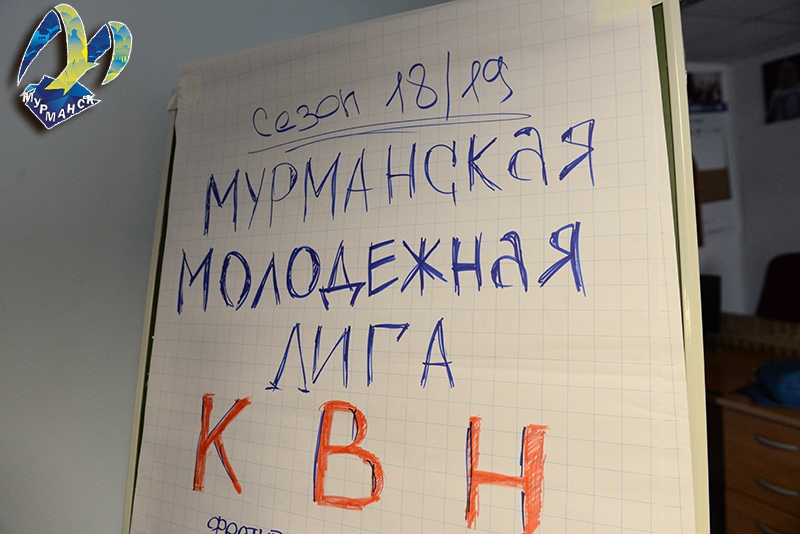 МУРМАНСК
Сезон 18/19
МУРМАНСКАЯ
МОЛОДЕЖНАЯ
ЛИГА
КВН